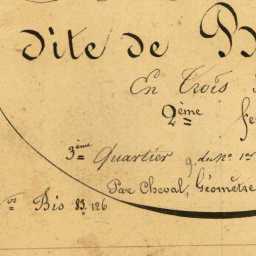 dite de B
En Trois
2ème fe
3ème Quartier du No. 1er
Par Cheval, Géomètre
Bis 83. 126